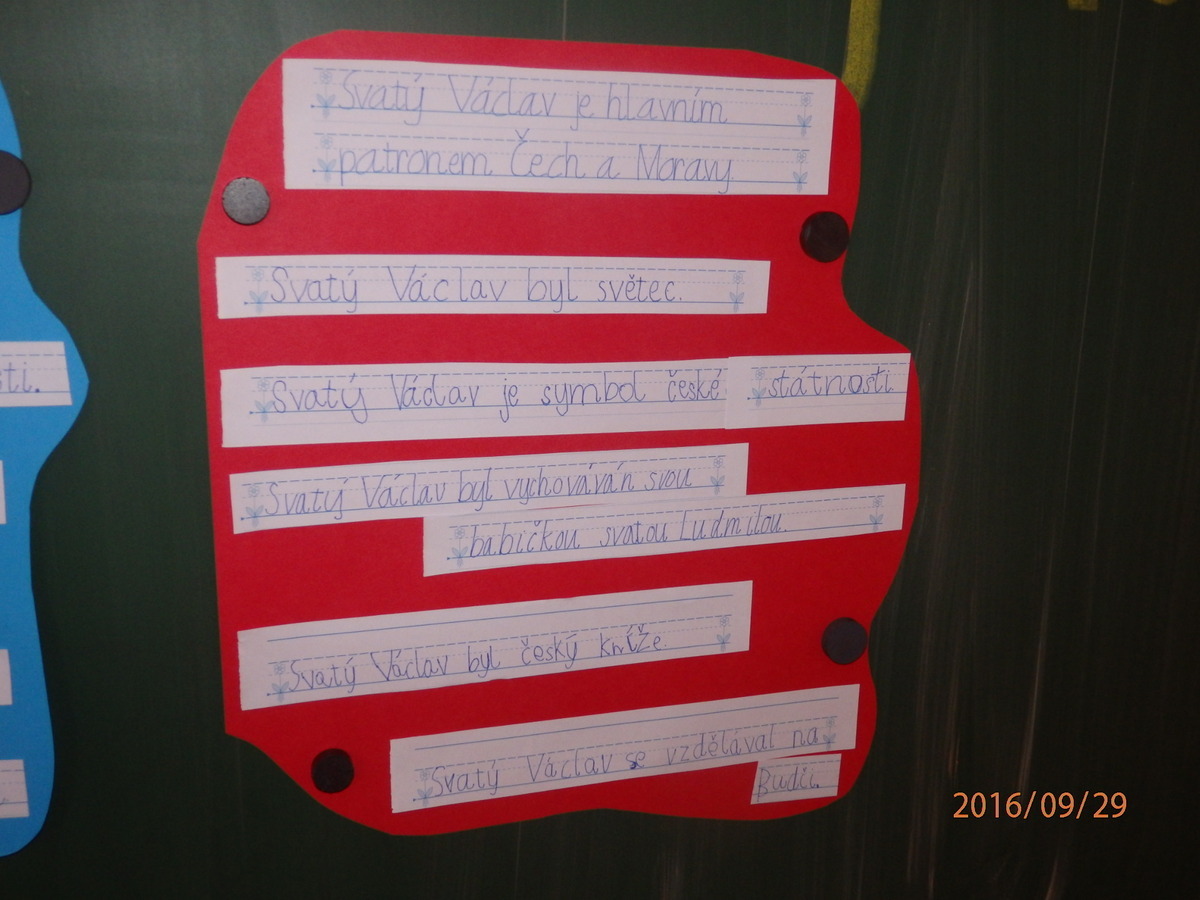 Svatý Václav je hlavním
patronem Čech a Moravy
Svatý Václav byl světec.
Svatý Václav je symbol české státnosti.
Svatý Václav byl vychováván svou
babičkou svatou Ludmilou.
Svatý Václav byl český kníže.
Svatý Václav se vzdělával na
Budči.
ti.
2016/09/29